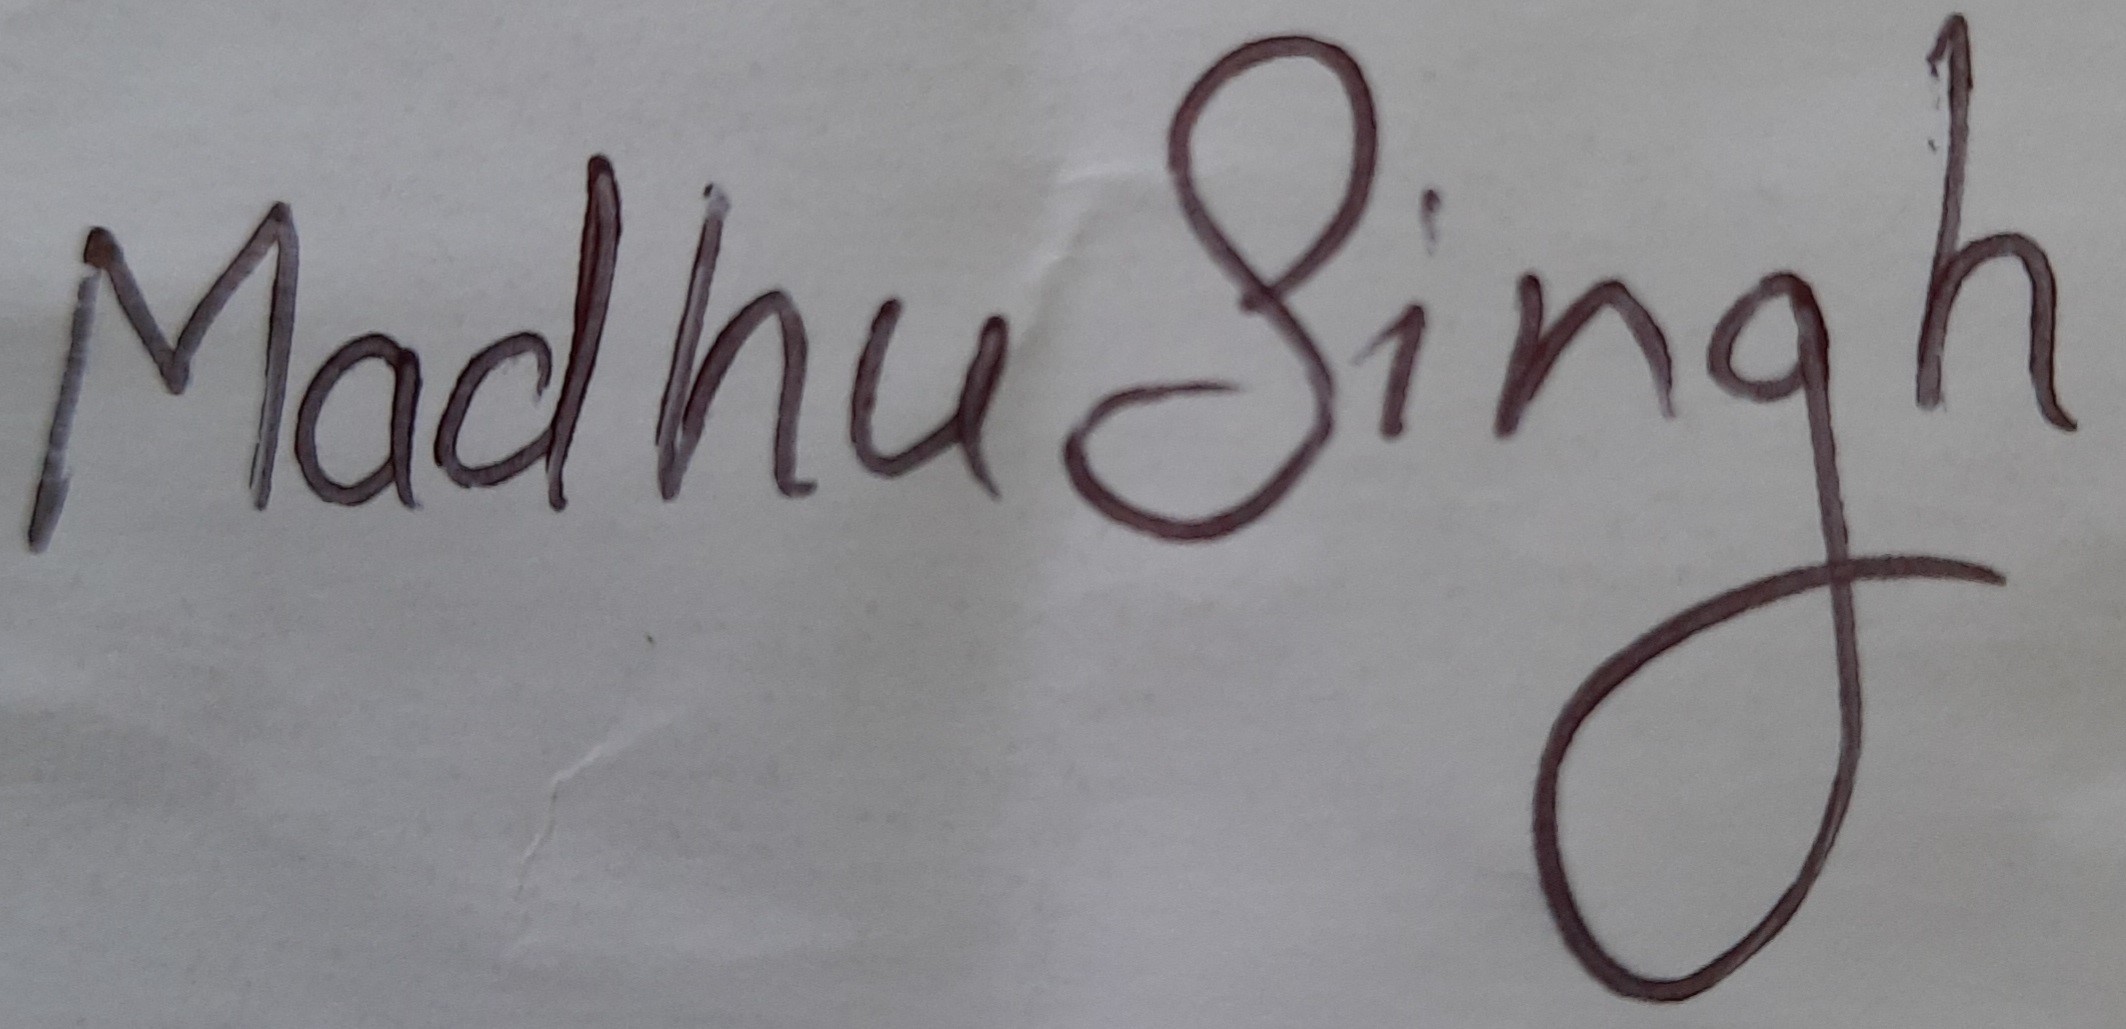 Madhu Singh